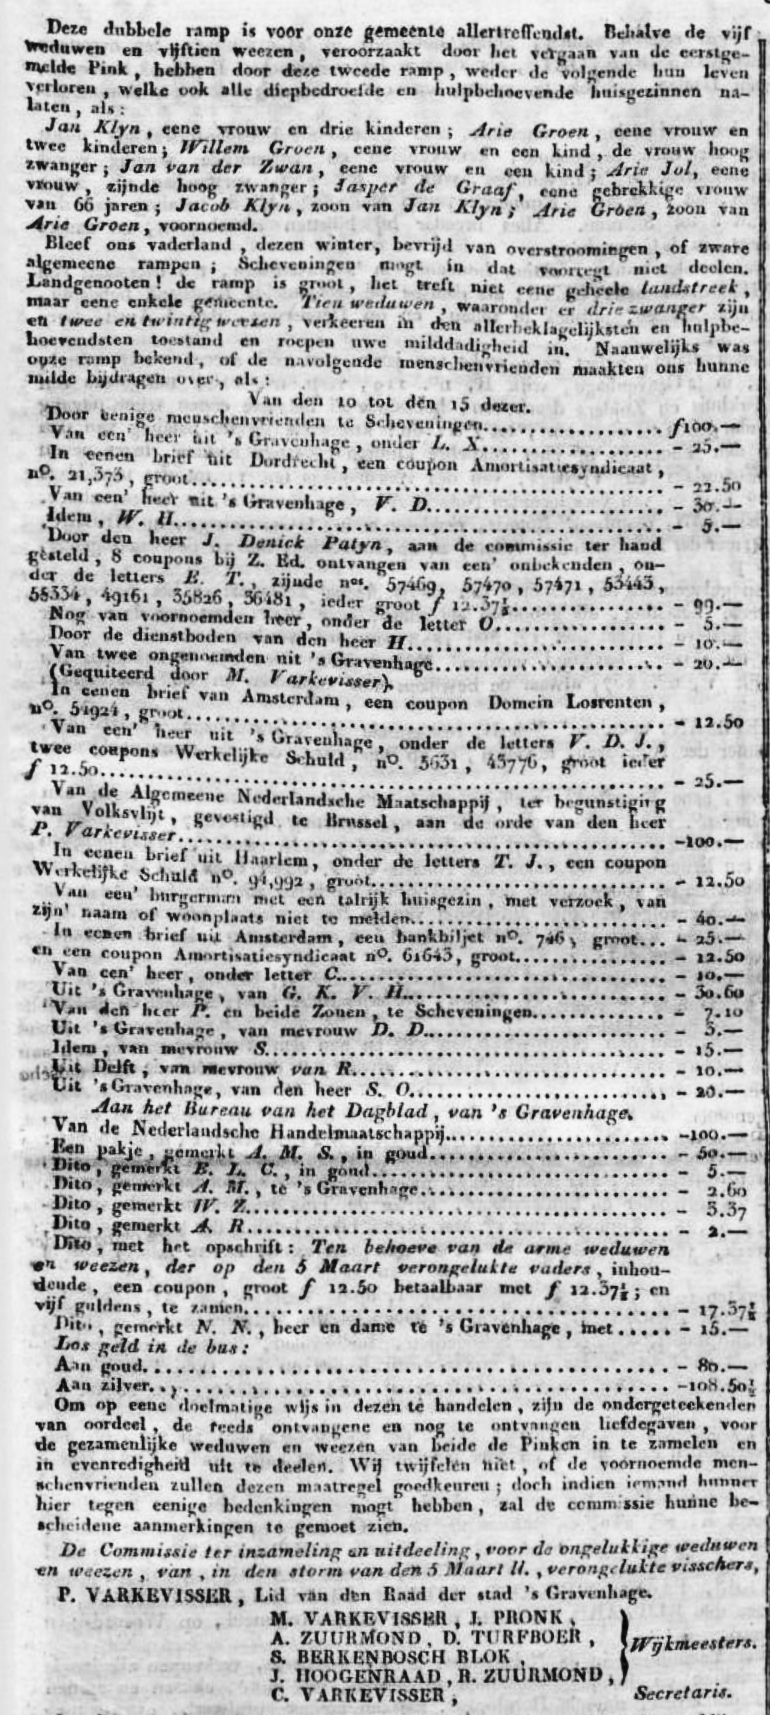 Deze dubbele ramp is voor onze gemeente allertreffendst. Behalve de vijf
weduwen en vijftien weezen, veroorzaakt door het vergaan van de eerstge-
melde Pink, hebben door deze tweede ramp, weder de volgende hun leven
verloren, welke ook alle diepbedroefde en hulpbehoevende huisgezinnen na-
laten, als:
Jan Klyn, eene vrouw en drie kinderen; Arie Groen, eene vrouw en
twee kinderen; Willem Groen, eene vrouw en een kind, de vrouw hoog
zwanger; Jan van der Zwan, eene vrouw en een kind; Arie Jol, eene
vrouw, zijnde hoog zwanger; Jasper de Graaf, eene gebrekkige vrouw
van 66 jaren; Jacob Klyn, zoon van Jan Klyn; Arie Groen, zoon van
Arie Groen, voornoemd.
Bleef ons vaderland, dezen winter, bevrijd van overstroomingen, of zware
algemeene rampen; Scheveningen mogt in dat voorregt niet deelen.
Landgenooten! de ramp is groot, het treft niet eene geheele landstreek,
maar eene enkele gemeente. Tien weduwen, waaronder er drie zwanger zijn
en twee en twintig weezen, verkeeren in den allerbeklagelijksten en hulpbe-
hoevendsten toestand en roepen uwe milddadigheid in. Naauwelijks was
onze ramp bekend, of de navolgende menschenvrienden maakten ons hunne
milde bijdragen over, als:
Van den 10 tot den 15 dezer.
Door eenige menschenvrienden te Scheveningen.................... f100.—
Van een' heer uit 's Gravenhage, onder L. X.................... - 25.—
In eenen brief uit Dordrecht, een coupon Amortisatiesyndicaat,
no. 21,373, groot.................... - 22.50
Van een' heer uit 's Gravenhage, V. D.................... - 30.—
Idem, W. H.................... - 5.—
Door den heer J. Denick Patyn, aan de commissie ter hand
gesteld, 8 coupons bij Z. Ed. ontvangen van een' onbekenden, on-
der de letters E. T., zijnde nos. 57469, 57470, 57471, 53443,
55334, 49161, 35826, 36481, ieder groot f 12.37½.................... - 99.—
Nog van voornoemden heer, onder de letter O.................... - 5.—
Door de dienstboden van den heer H.................... - 10.—
Van twee ongenoemden uit 's Gravenhage.................... - 20.—
(Gequiteerd door M. Varkevisser).
In eenen brief van Amsterdam, een coupon Domein Losrenten,
no. 54924, groot.................... - 12.50
Van een' heer uit 's Gravenhage, onder de letters V. D. J.,
twee coupons Werkelijke Schuld, no. 5631, 43776, groot ieder
f 12.50.................... - 25.—
Van de Algemeene Nederlandsche Maatschappij, ter begunstiging
van Volksvlijt, gevestigd te Brussel, aan de orde van den heer
P. Varkevisser.................... -100.—
In eenen brief uit Haarlem, onder de letters T. J., een coupon
Werkelijke Schuld no. 94,992, groot.................... - 12.50
Van een' burgerman met een talrijk huisgezin, met verzoek, van
zijn' naam of woonplaats niet te melden.................... - 40.—
In eenen brief uit Amsterdam, een bankbiljet no. 746, groot... - 25.—
en een coupon Amortisatiesyndicaat no. 61643, groot.................... - 12.50
Van een' heer, onder letter C.................... - 10.—
Uit 's Gravenhage, van G. K. V. H.................... - 30.60
Van den heer P. en beide Zonen, te Scheveningen.................... - 7.10
Uit 's Gravenhage, van mevrouw D. D.................... - 3.—
Idem, van mevrouw S.................... - 15.—
Uit Delft, van mevrouw van R.................... - 10.—
Uit 's Gravenhage, van den heer S. O.................... - 20.—
Aan het Bureau van het Dagblad, van 's Gravenhage.
Van de Nederlandsche Handelmaatschappij.................... -100.—
Een pakje, gemerkt A. M. S., in goud.................... - 50.—
Dito, gemerkt E. L. C., in goud.................... - 5.—
Dito, gemerkt A. M., te 's Gravenhage.................... - 2.60
Dito, gemerkt W. Z.................... - 3.37
Dito, gemerkt A. R.................... - 2.—
Dito, met het opschrift: Ten behoeve van de arme weduwen
en weezen, der op den 5 Maart verongelukte vaders, inhou-
dende, een coupon, groot f 12.50 betaalbaar met f 12.37½; en
vijf guldens, te zamen.................... - 17.37½
Dito, gemerkt N. N., heer en dame te 's Gravenhage, met ..... - 15.—
Los geld in de bus:
Aan goud.................... - 80.—
Aan zilver.................... -108.50½
Om op eene doelmatige wijs in dezen te handelen, zijn de ondergeteekenden
van oordeel, de reeds ontvangene en nog te ontvangen liefdegaven, voor
de gezamenlijke weduwen en weezen van beide de Pinken in te zamelen en
in evenredigheid uit te deelen. Wij twijfelen niet, of de voornoemde men-
schenvrienden zullen dezen maatregel goedkeuren; doch indien iemand hunner
hier tegen eenige bedenkingen mogt hebben, zal de commissie hunne be-
scheidene aanmerkingen te gemoet zien.
De Commissie ter inzameling en uitdeeling, voor de ongelukkige weduwen
en weezen, van, in den storm van den 5 Maart ll., verongelukte visschers,
P. VARKEVISSER, Lid van den Raad der stad 's Gravenhage.
M. VARKEVISSER, J. PRONK,
A. ZUURMOND, D. TURFBOER,
S. BERKENBOSCH BLOK,
J. HOOGENRAAD, R. ZUURMOND,
Wijkmeesters.
C. VARKEVISSER, Secretaris.